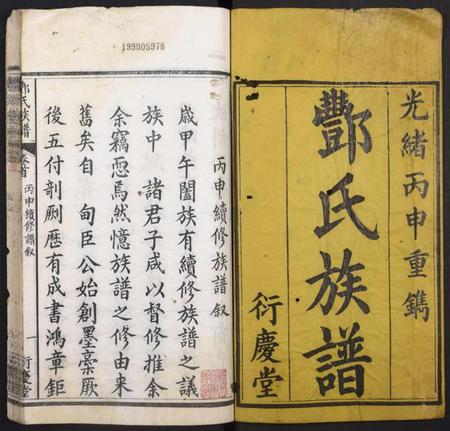 光緒丙申重鐫
酆氏族譜
衍慶堂
199005978
丙申續修族譜叙
歲甲午闔族有續修族譜之議
族中 諸君子咸以督修推余
余竊恧焉然憶族譜之修由來
舊矣自 甸臣公始創墨稾厥
後五付剞劂歷有成書鴻章鉅
氏族譜
卷首
丙申續修譜叙
一
衍慶堂